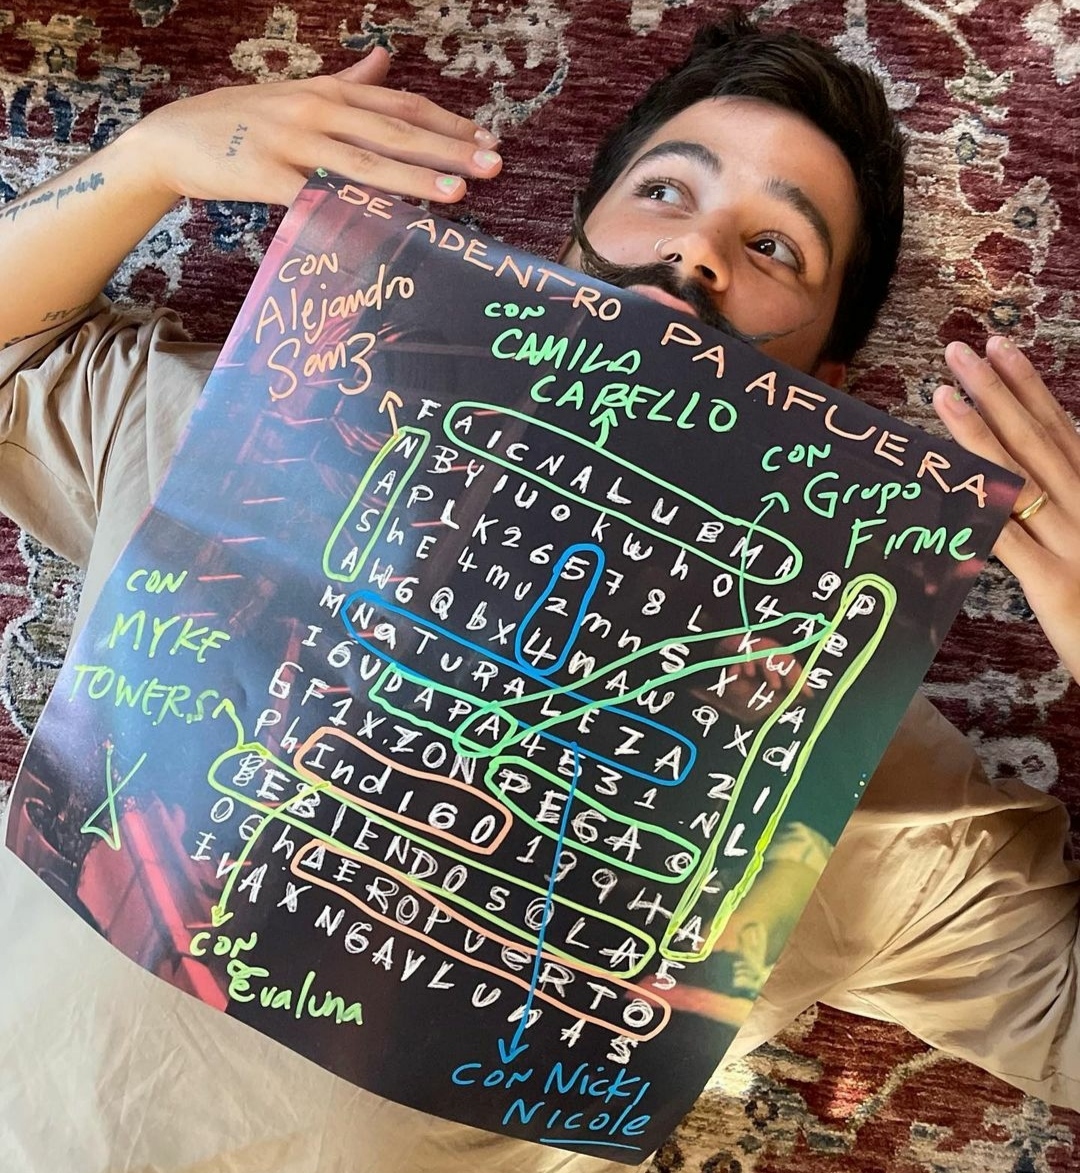 WHY
DE ADENTRO PA AFUERA
CON
Alejandro
Sanz
CON
CAMILA
CABELLO
CON
Grupo
Firme
CON
MYKE
TOWERS
F A I C N A L U B M A 9 P
N B Y I U O K W h O 4 A E
A P L K 2 6 5 7 8 L K W S
S h E 4 m U 2 m n S X H A
A W 6 Q b X 4 n A W Q X d
M N a T U R A L E Z A 2 I
I 6 U D A P A 4 5 3 1 N L
6 F 1 X Z O N P E G A O L
P h I n d I G O 1 9 9 H A
B E B I E N D O S O L A 5
O G h A E R O P U e R T O
I V A X N G A V L U n A S
CON
Evaluna
CON Nicki
Nicole